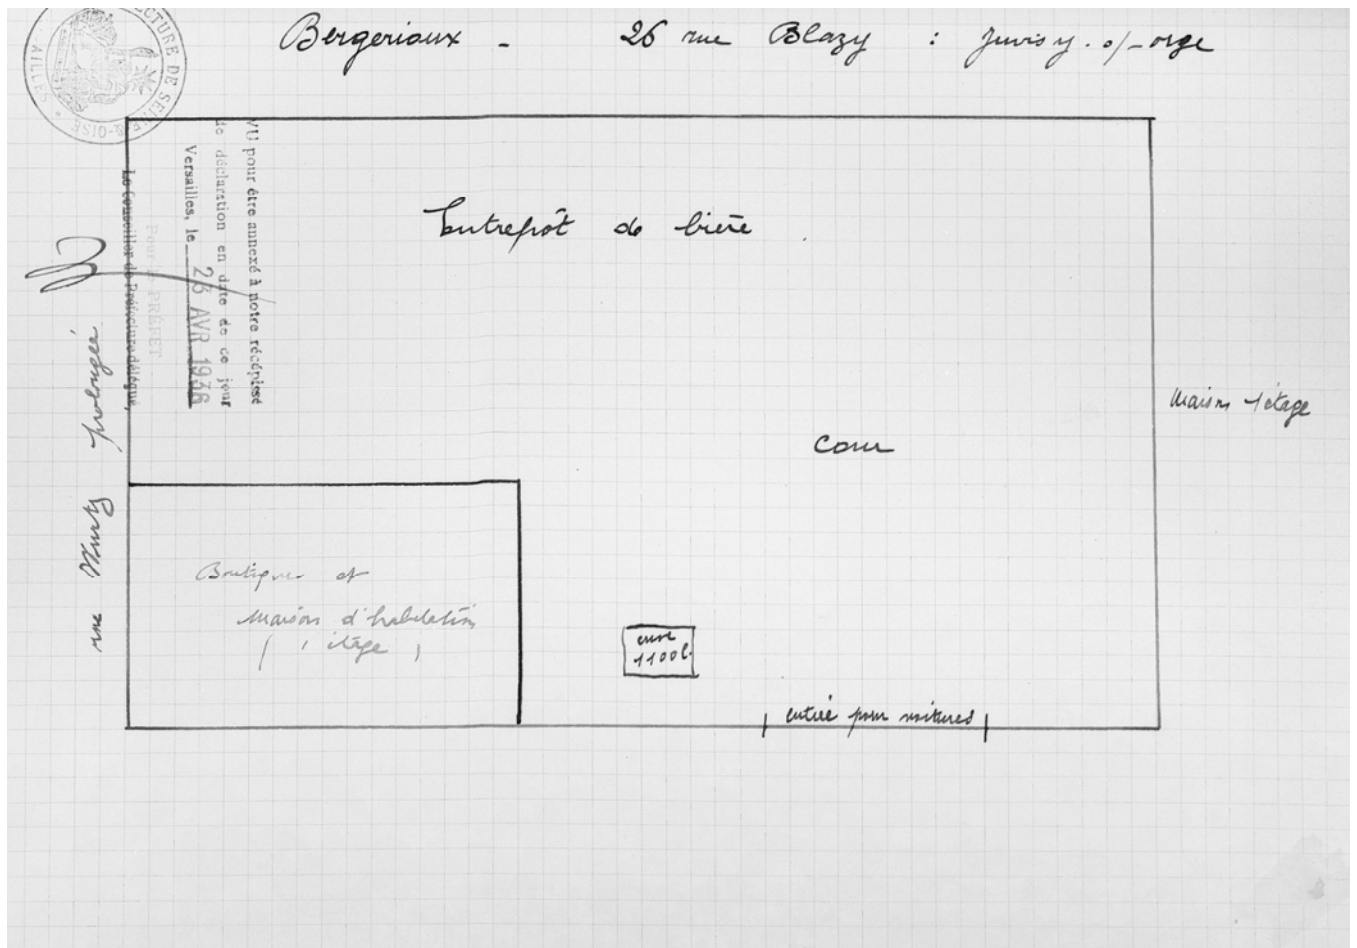 Bergerioux - 26 rue Blazy : Juvisy. s/-orge
PRÉFECTURE DE SEINE-&-OISE * VERSAILLES *
VU pour être annexé à notre récépissé
de déclaration en date de ce jour
Versailles, le 23 AVR 1936
Pour le PRÉFET
Le Conseiller de Préfecture délégué,
Entrepôt de bière
rue Wurtz prolongée
Maison 1 étage
Cour
Boutique et
maison d'habitation
( 1 étage )
cuve
1100 l.
entrée pour voitures